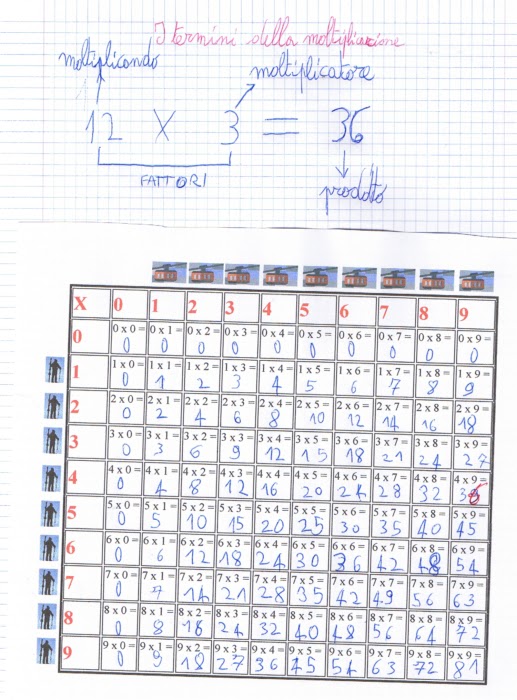 I termini della moltiplicazione
moltiplicando
moltiplicatore
12 X 3 = 36
FATTORI
prodotto
X 0 1 2 3 4 5 6 7 8 9
0 0 x 0 = 0 0 x 1 = 0 0 x 2 = 0 0 x 3 = 0 0 x 4 = 0 0 x 5 = 0 0 x 6 = 0 0 x 7 = 0 0 x 8 = 0 0 x 9 = 0
1 1 x 0 = 0 1 x 1 = 1 1 x 2 = 2 1 x 3 = 3 1 x 4 = 4 1 x 5 = 5 1 x 6 = 6 1 x 7 = 7 1 x 8 = 8 1 x 9 = 9
2 2 x 0 = 0 2 x 1 = 2 2 x 2 = 4 2 x 3 = 6 2 x 4 = 8 2 x 5 = 10 2 x 6 = 12 2 x 7 = 14 2 x 8 = 16 2 x 9 = 18
3 3 x 0 = 0 3 x 1 = 3 3 x 2 = 6 3 x 3 = 9 3 x 4 = 12 3 x 5 = 15 3 x 6 = 18 3 x 7 = 21 3 x 8 = 24 3 x 9 = 27
4 4 x 0 = 0 4 x 1 = 4 4 x 2 = 8 4 x 3 = 12 4 x 4 = 16 4 x 5 = 20 4 x 6 = 24 4 x 7 = 28 4 x 8 = 32 4 x 9 = 36
5 5 x 0 = 0 5 x 1 = 5 5 x 2 = 10 5 x 3 = 15 5 x 4 = 20 5 x 5 = 25 5 x 6 = 30 5 x 7 = 35 5 x 8 = 40 5 x 9 = 45
6 6 x 0 = 0 6 x 1 = 6 6 x 2 = 12 6 x 3 = 18 6 x 4 = 24 6 x 5 = 30 6 x 6 = 36 6 x 7 = 42 6 x 8 = 48 6 x 9 = 54
7 7 x 0 = 0 7 x 1 = 7 7 x 2 = 14 7 x 3 = 21 7 x 4 = 28 7 x 5 = 35 7 x 6 = 42 7 x 7 = 49 7 x 8 = 56 7 x 9 = 63
8 8 x 0 = 0 8 x 1 = 8 8 x 2 = 16 8 x 3 = 24 8 x 4 = 32 8 x 5 = 40 8 x 6 = 48 8 x 7 = 56 8 x 8 = 64 8 x 9 = 72
9 9 x 0 = 0 9 x 1 = 9 9 x 2 = 18 9 x 3 = 27 9 x 4 = 36 9 x 5 = 45 9 x 6 = 54 9 x 7 = 63 9 x 8 = 72 9 x 9 = 81